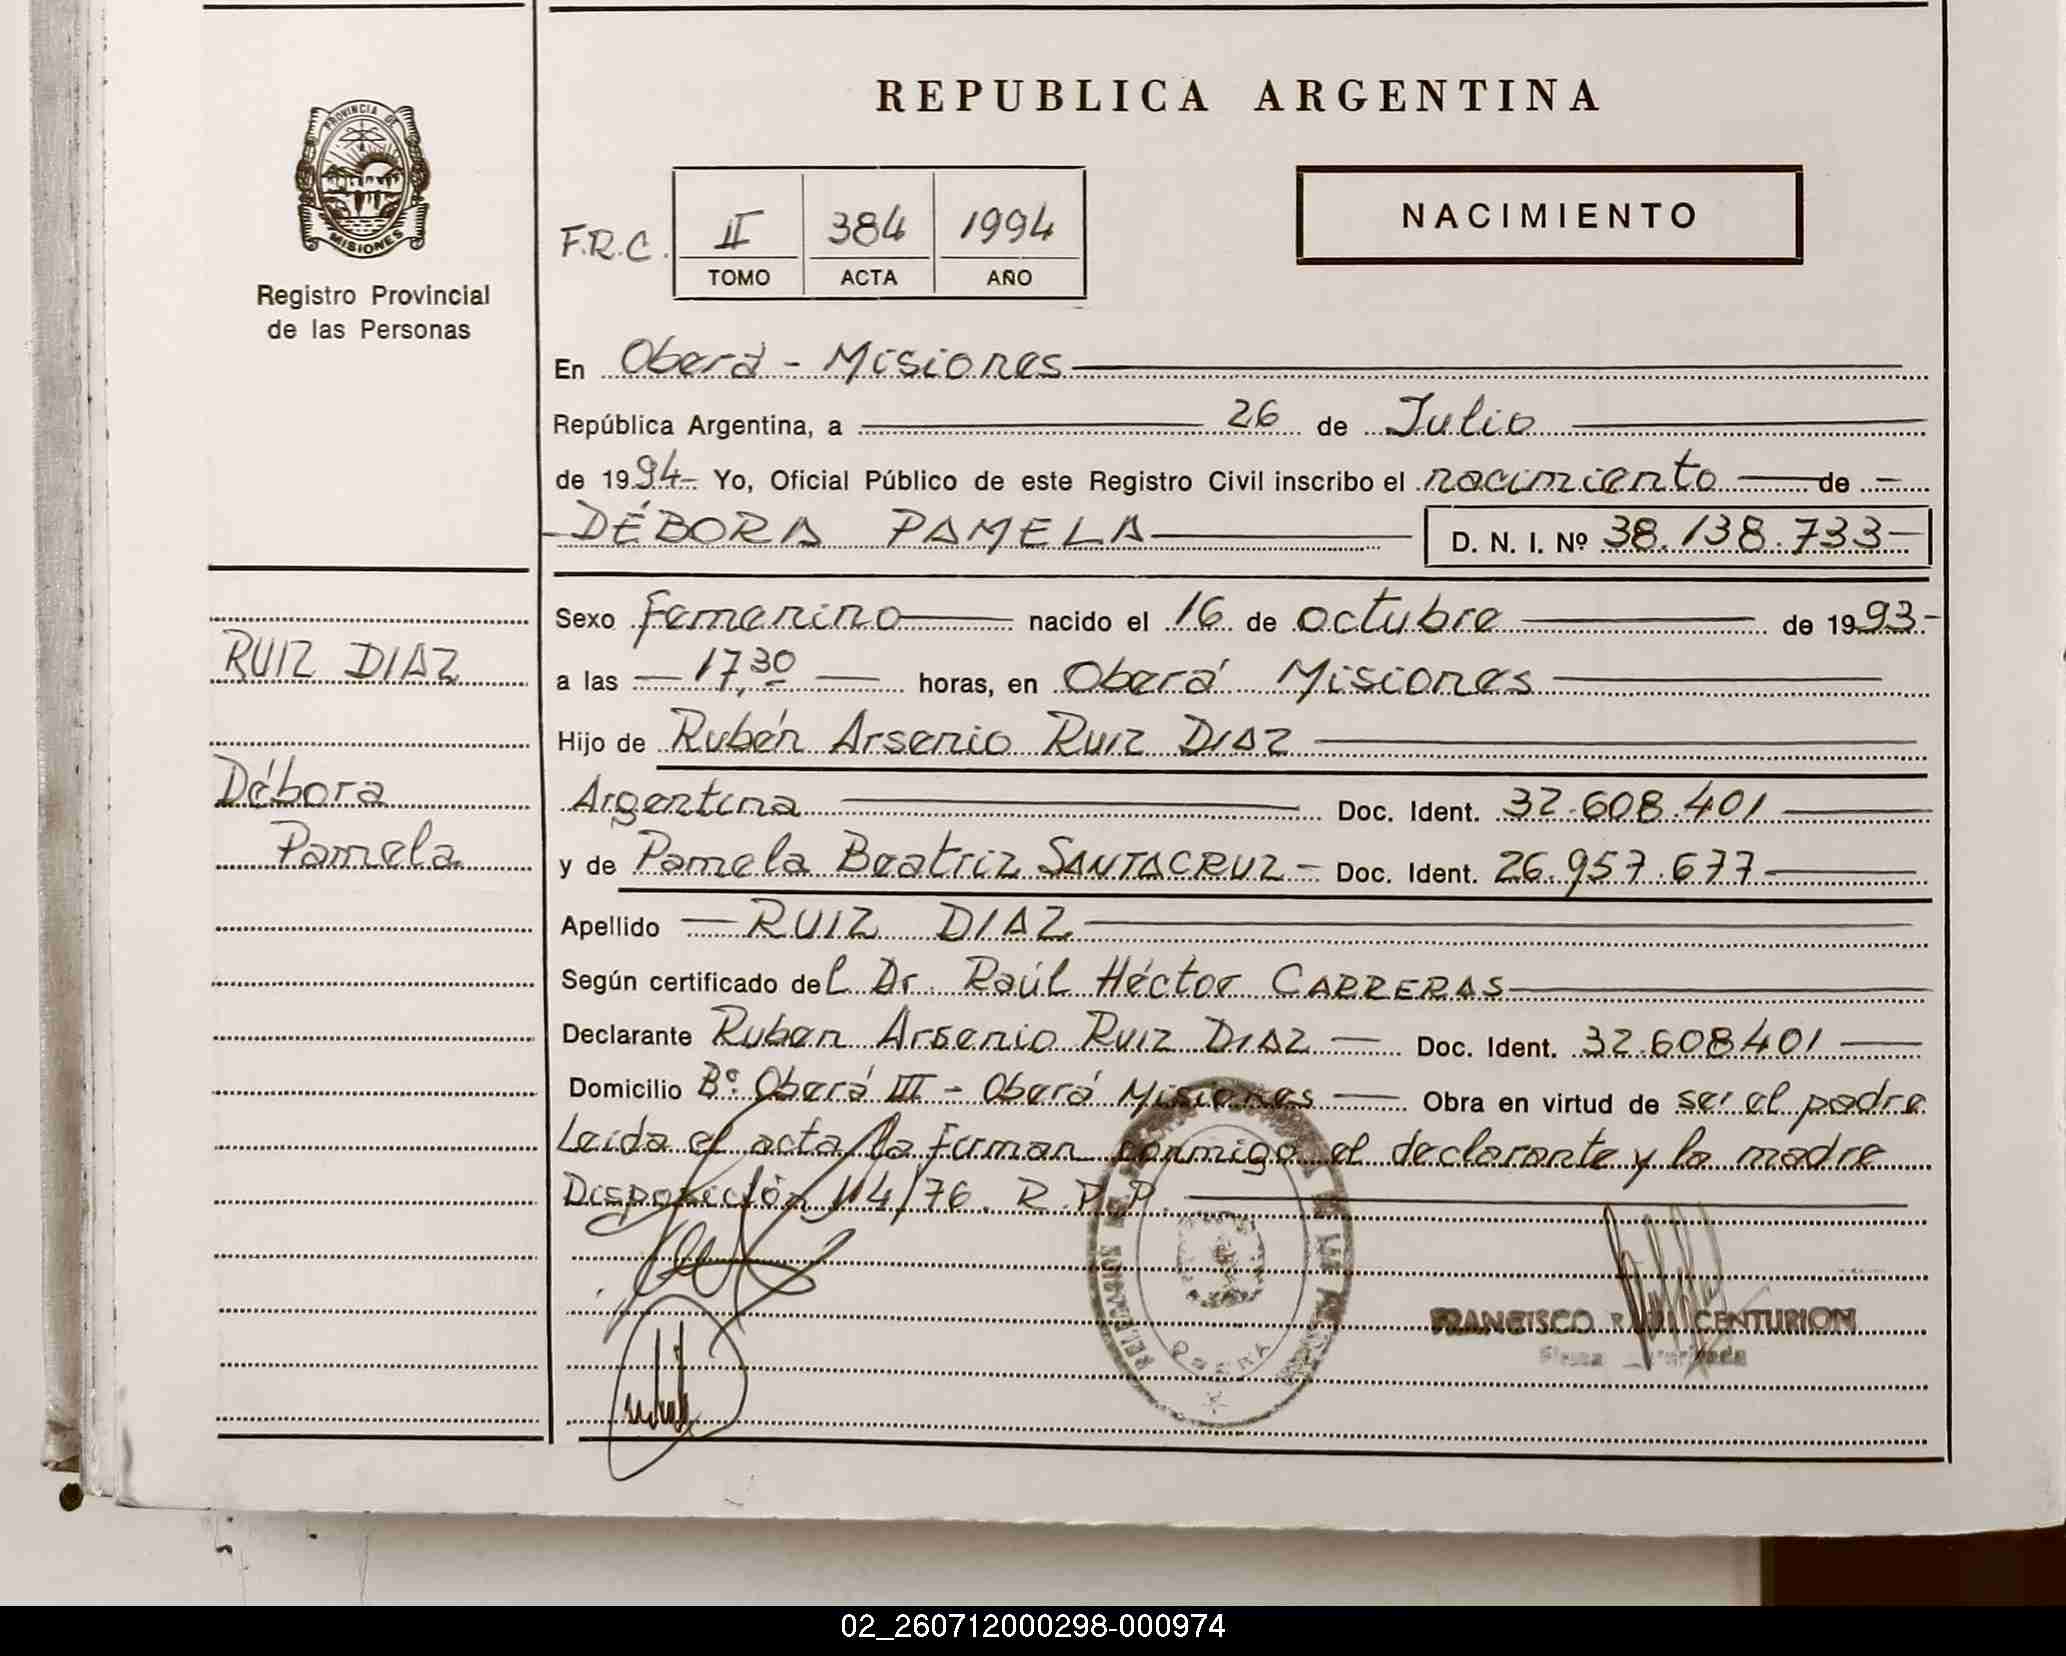 REPUBLICA ARGENTINA
PROVINCIA DE
MISIONES
Registro Provincial
de las Personas
F.R.C. II 384 1994
TOMO ACTA AÑO
NACIMIENTO
En Oberá - Misiones
República Argentina, a 26 de Julio
de 1994- Yo, Oficial Público de este Registro Civil inscribo el nacimiento de -
DÉBORA PAMELA D. N. I. Nº 38.138.733-
Sexo femenino nacido el 16 de octubre de 1993-
RUIZ DIAZ
a las 17,30 horas, en Oberá Misiones
Hijo de Rubén Arsenio Ruiz DIAZ
Débora
Argentina Doc. Ident. 32.608.401
Pamela
y de Pamela Beatriz SANTACRUZ - Doc. Ident. 26.957.677
Apellido RUIZ DIAZ
Según certificado del Dr. Raúl Héctor CARRERAS
Declarante Ruben Arsenio Ruiz DIAZ Doc. Ident. 32.608401
Domicilio Bº Oberá III - Oberá Misiones Obra en virtud de ser el padre
Leida el acta la firman conmigo el declarante y la madre
Disposición 14/76. R.P.P.
OBERA
FRANCISCO R CENTURION
Firma
02_260712000298-000974